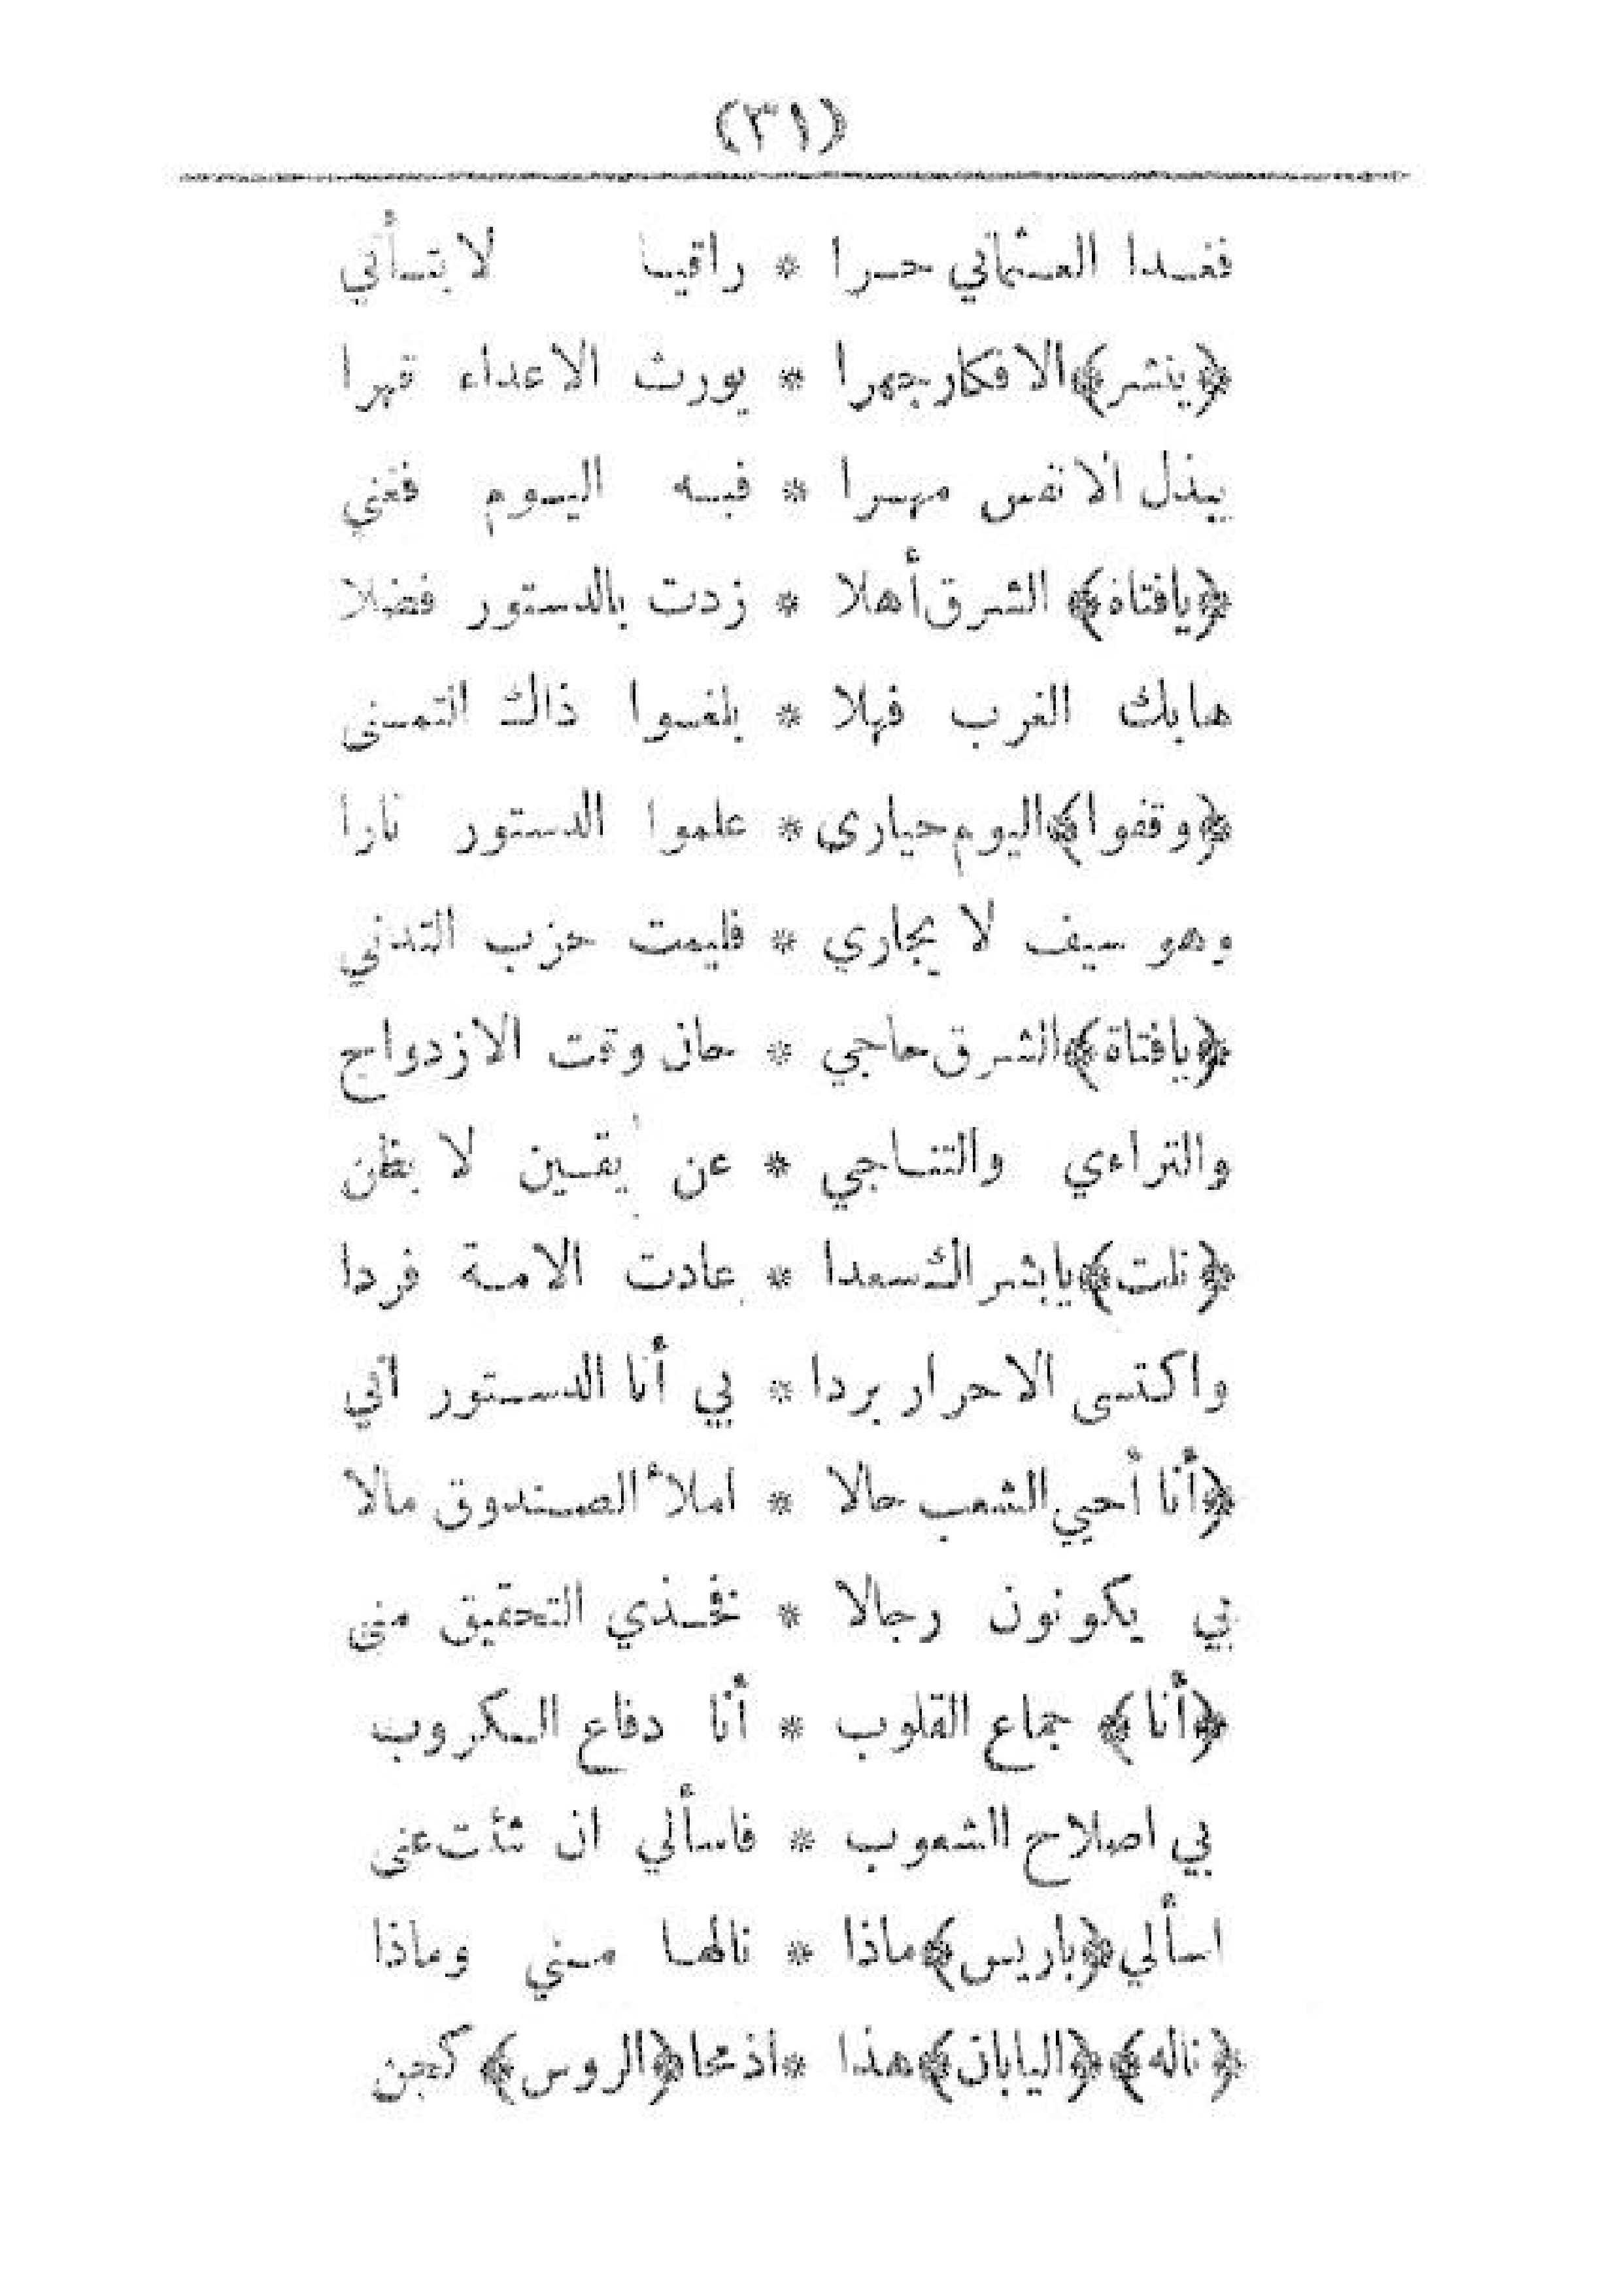 (٣١)
فغدا العثماني حرا * راقيا لا يتأني
﴿ينشر﴾ الافكار جهرا * يورث الاعداء قهرا
يبذل الانفس مهرا * فبه اليوم فغني
﴿يافتاة﴾ الشرق أهلا * زدت بالدستور فضلا
هابك الغرب فهلا * بلغوا ذاك التمني
﴿وقفوا﴾ اليوم حيارى * علموا الدستور نارا
وهو سيف لا يجاري * فليمت حزب التدني
﴿يافتاة﴾ الشرق حاجي * حان وقت الازدواج
والتراءي والتناجي * عن يقين لا بظن
﴿نلت﴾ يابشراك سعدا * عادت الامة فردا
واكتسى الاحرار بردا * بي أنا الدستور اني
﴿أنا أحيي الشعب حالا * املأ الصندوق مالا
بي يكونون رجالا * فخذي التحقيق مني
﴿أنا﴾ جماع القلوب * أنا دفاع الكروب
بي اصلاح الشعوب * فاسألي ان شئت عني
اسألي ﴿باريس﴾ ماذا * نالها مني وماذا
﴿ناله﴾ ﴿اليابان﴾ هذا * اذ محا ﴿الروس﴾ كجن